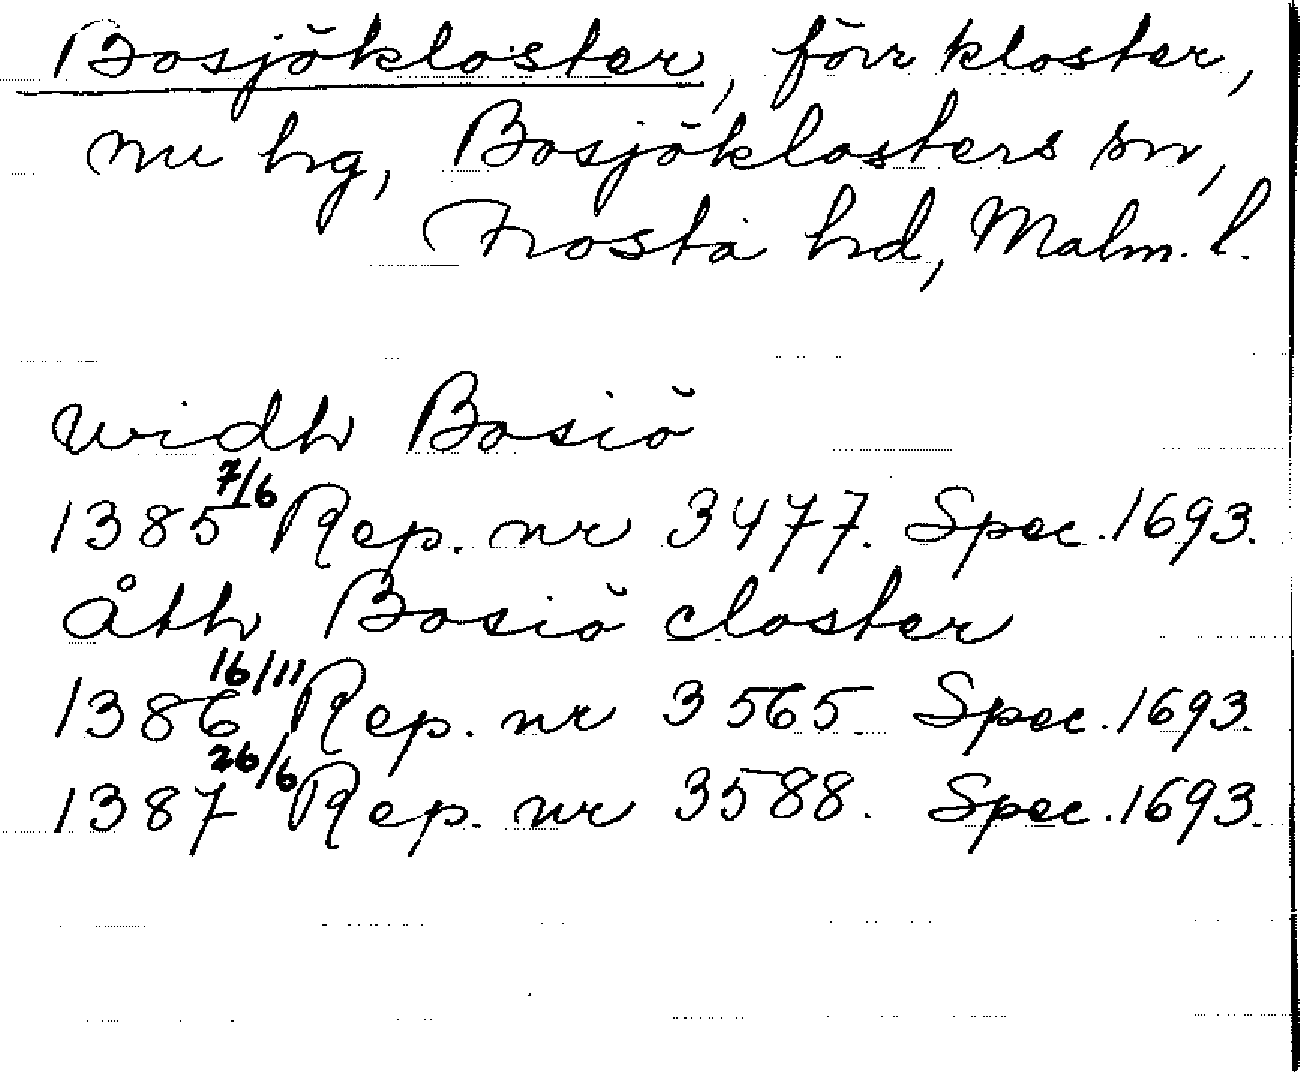 Bosjökloster, förr kloster,
nu hg, Bosjöklosters sn,
Frosta hd, Malm. l.
widh Bosiö
1385 7/6 Rep. nr 3477. Spec. 1693.
åth Bosiö closter
1386 16/11 Rep. nr 3565 Spec. 1693.
1387 26/6 Rep. nr 3588. Spec. 1693.